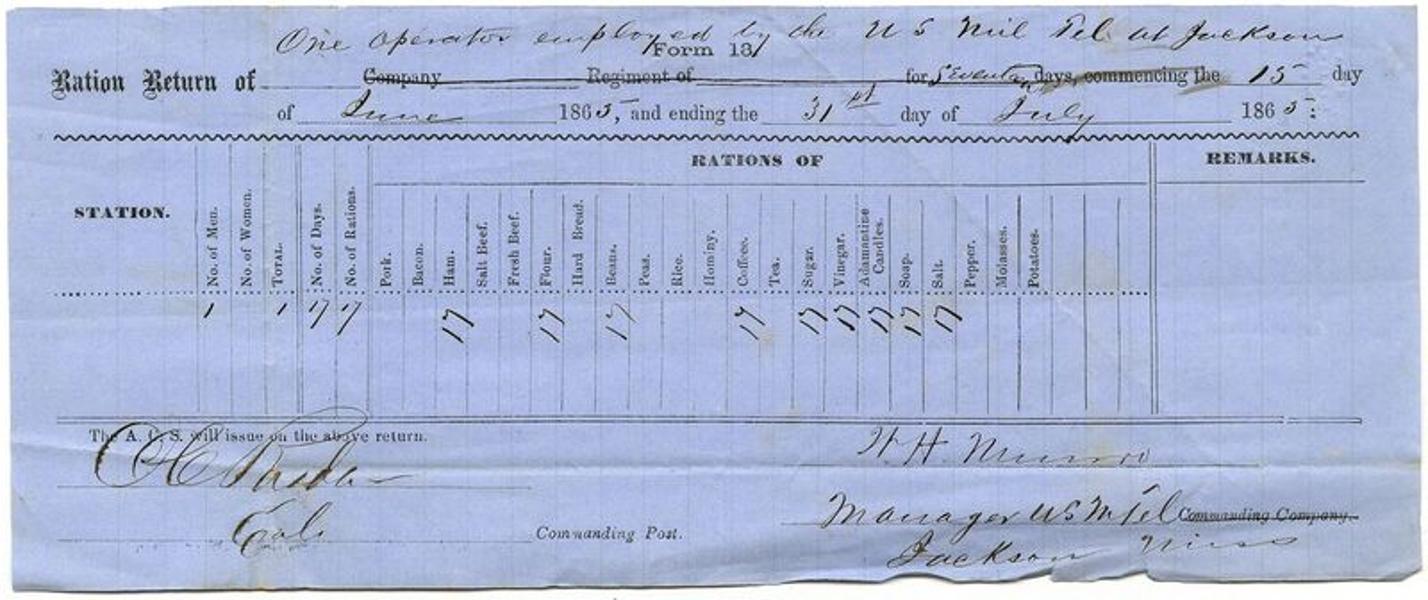 One operator employed by the U S Mil Tel at Jackson
Form 13
Ration Return of Company Regiment of for Seventeen days, commencing the 15 day
of June 1865, and ending the 31st day of July 1865:
RATIONS OF REMARKS.
STATION. No. of Men. No. of Women. TOTAL. No. of Days. No. of Rations. Pork. Bacon. Ham. Salt Beef. Fresh Beef. Flour. Hard Bread. Beans. Peas. Rice. Hominy. Coffee. Tea. Sugar. Vinegar. Adamantine Candles. Soap. Salt. Pepper. Molasses. Potatoes.
1 1 17 17 17 17 17 17 17 17 17 17 17
The A. C. S. will issue on the above return.
H. Munro
Manager US M Tel Commanding Company.
Commanding Post.
Jackson Miss